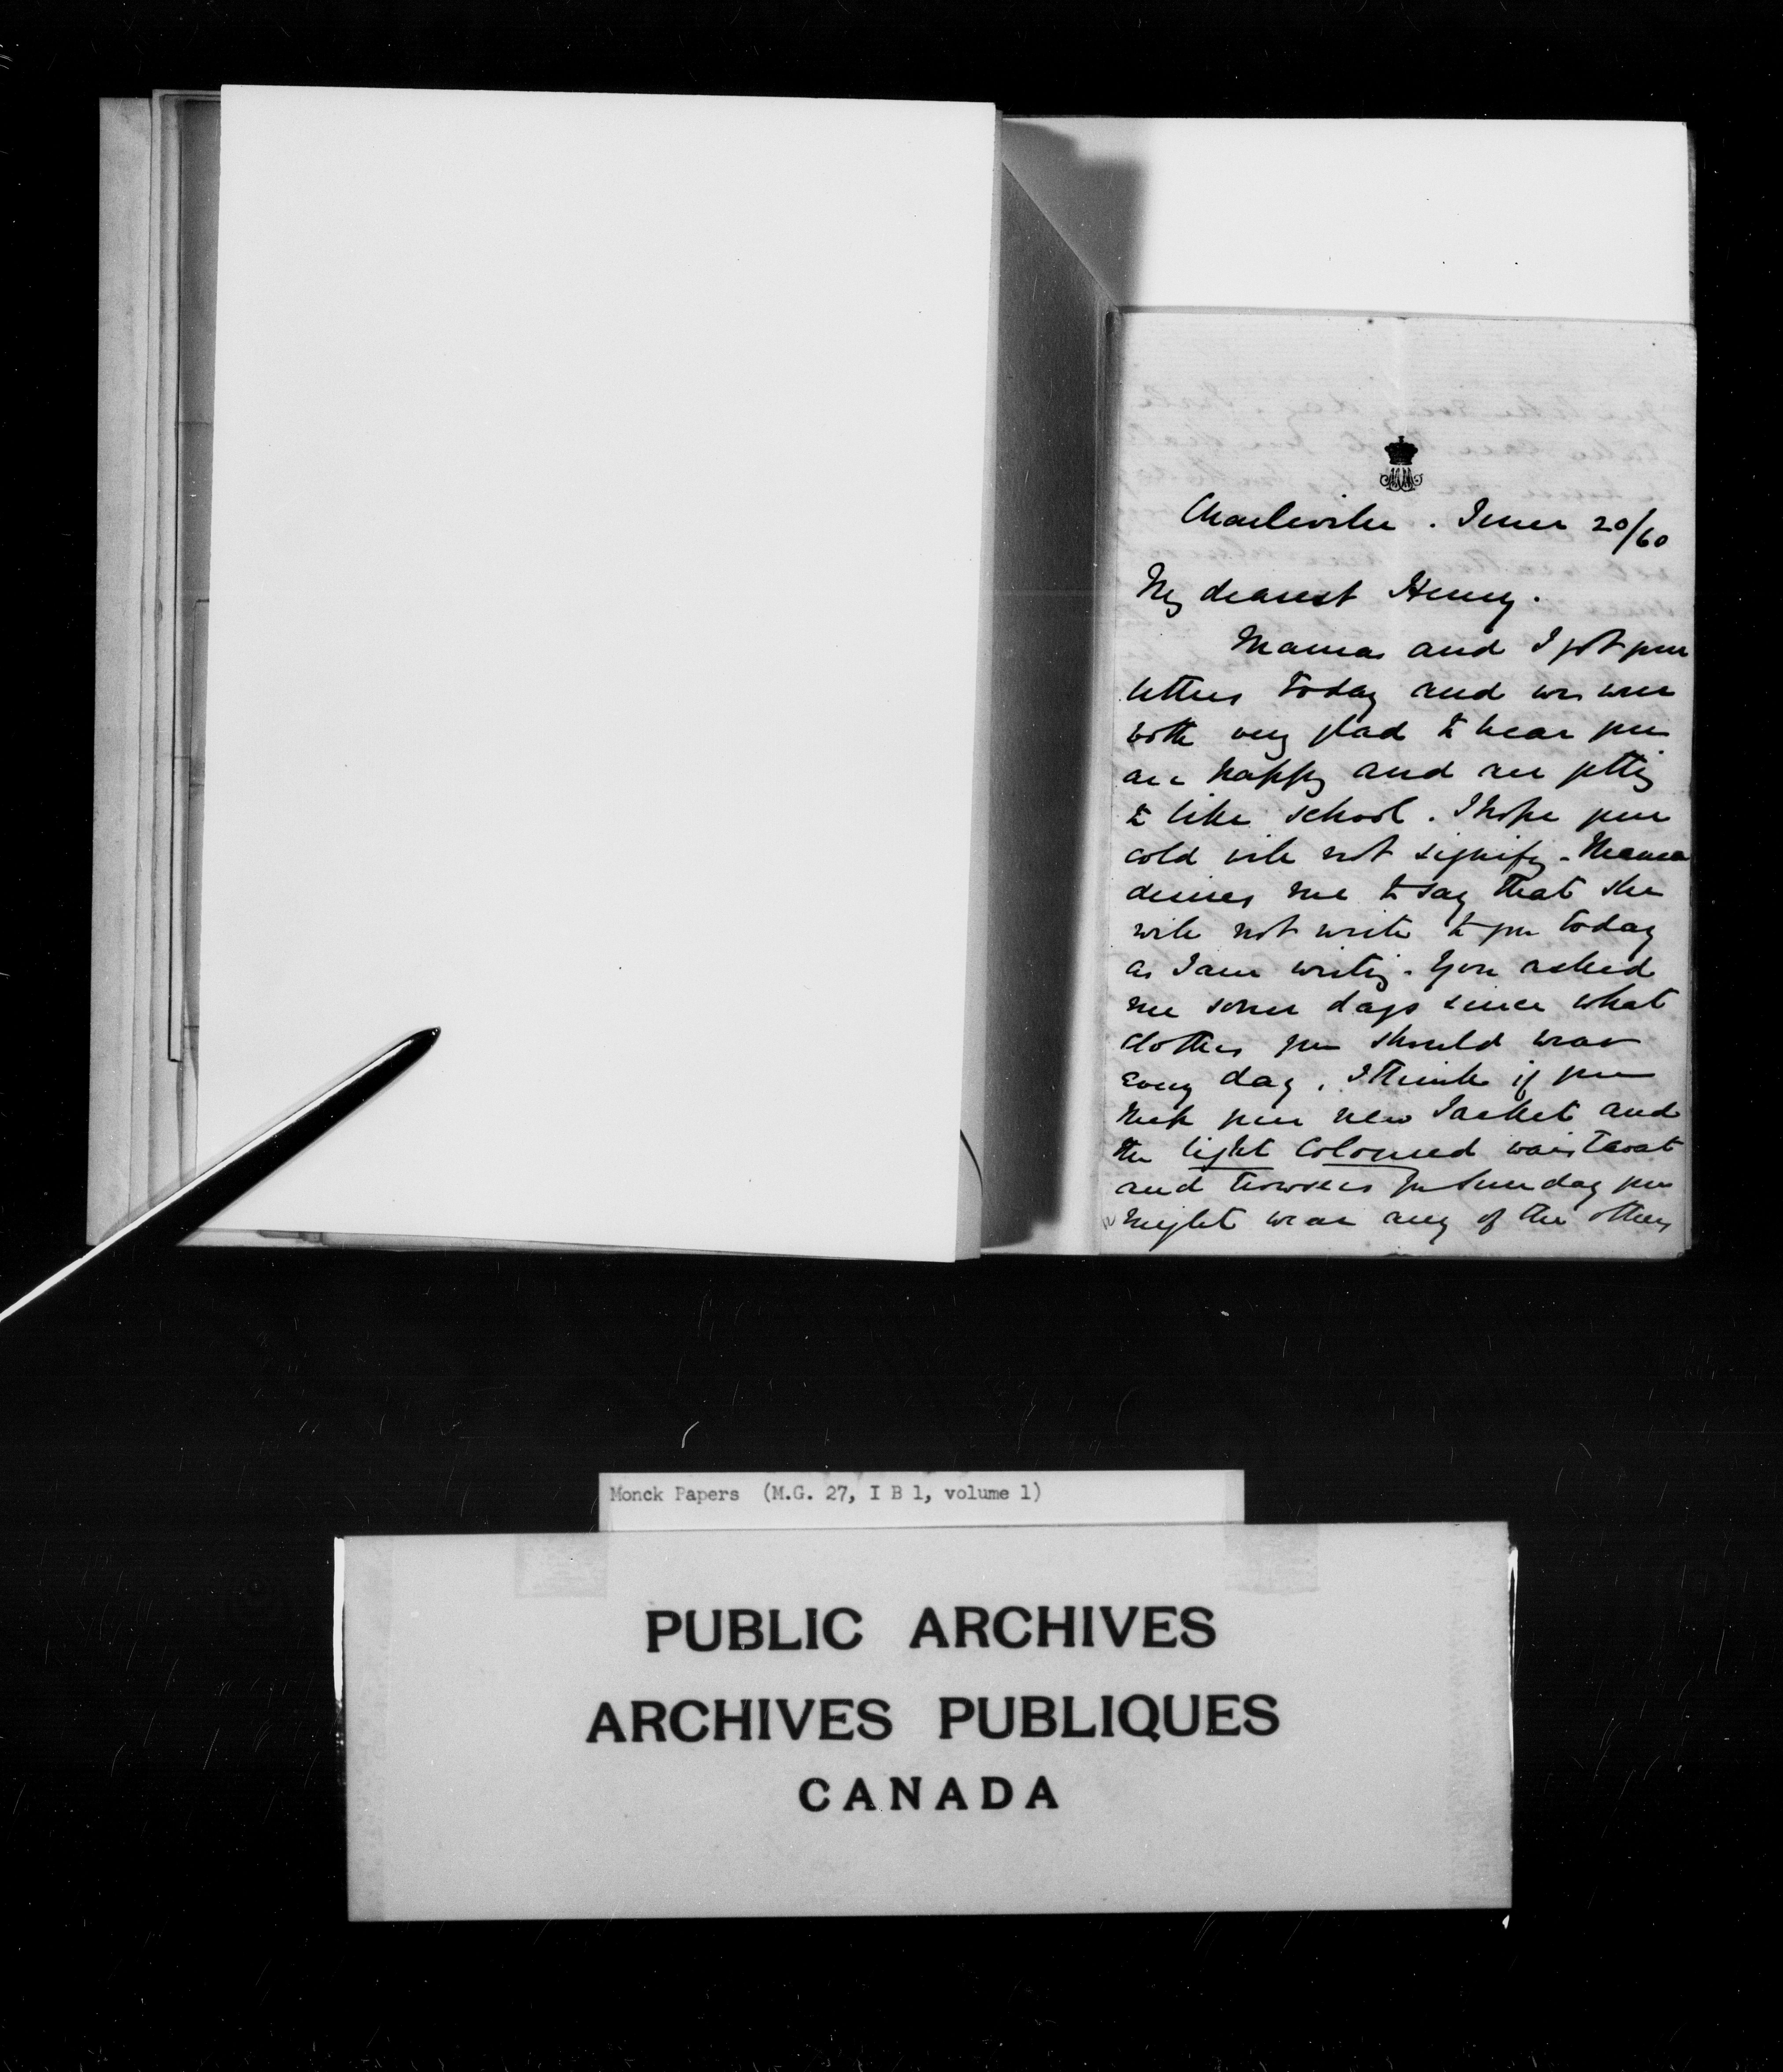 Charleville . June 20/60
My dearest Henry.
Mama and I got your
letters today and we were
both very glad to hear you
are happy and are getting
to like school . I hope your
cold will not signify - Mama
desires me to say that she
will not write to you today
as I am writing - You asked
me some days since what
clothes you should wear
every day . I think if you
keep your new Jacket and
the light Coloured waistcoat
and trowsers for Sunday you
might wear any of the others
Monck Papers (M.G. 27, I B 1, volume 1)
PUBLIC ARCHIVES
ARCHIVES PUBLIQUES
CANADA